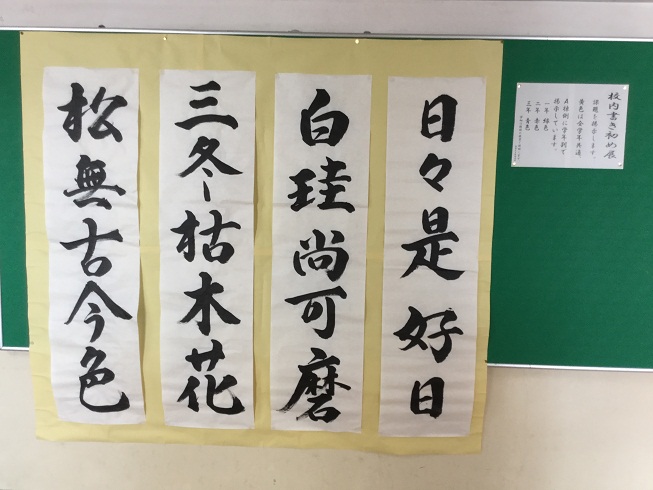 校内書き初め展
課題を掲出します。
黄色は全学年共通、
A棟側に学年別で
掲示しています。
一年 緑色
二年 赤色
三年 青色
日々是好日
白珪尚可磨
三冬枯木花
松無古今色